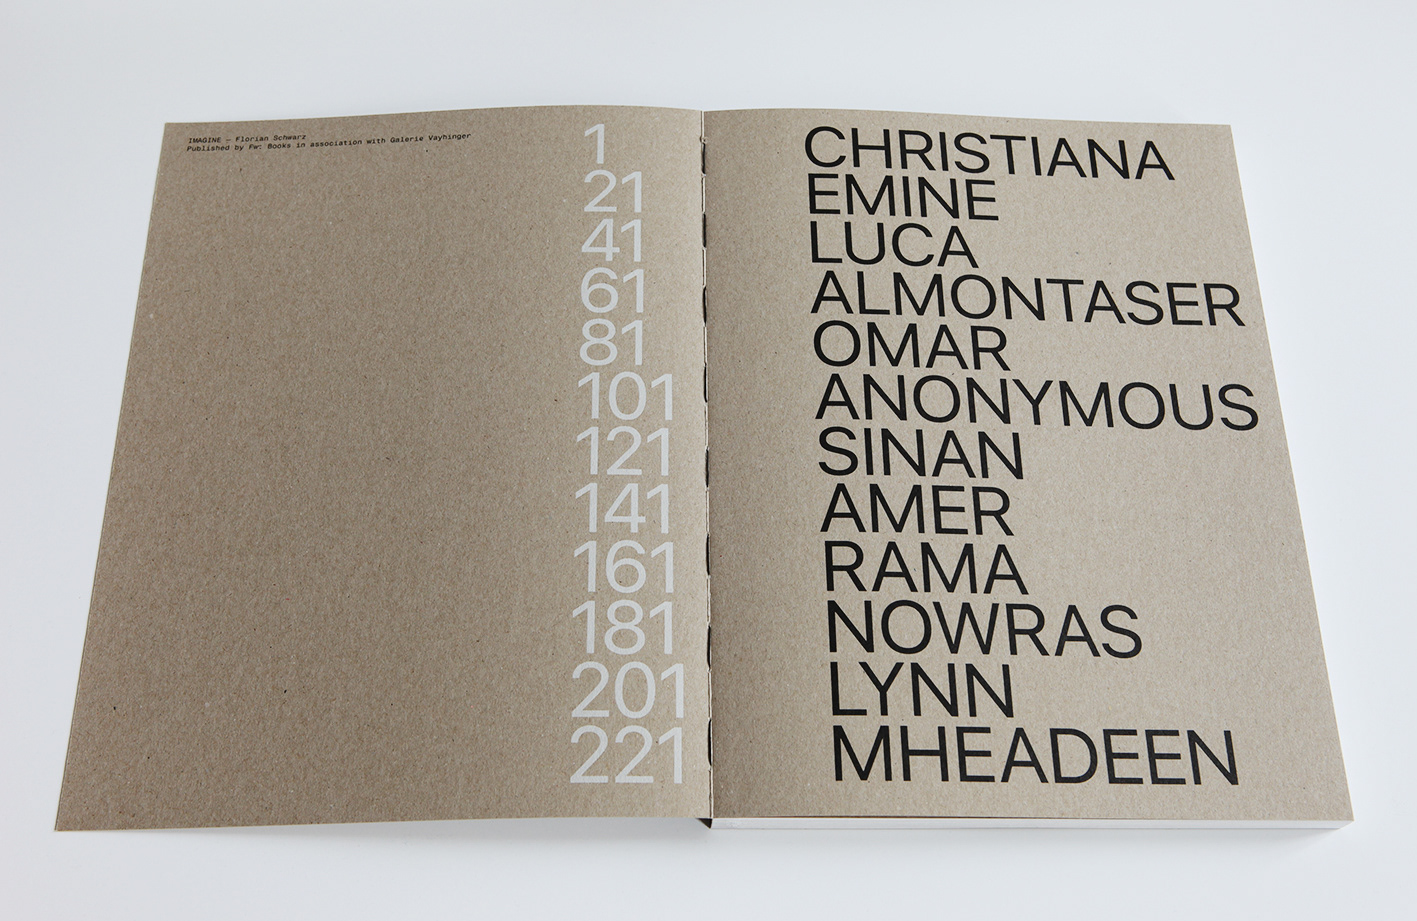 IMAGINE — Florian Schwarz
Published by Fw: Books in association with Galerie Vayhinger
1
21
41
61
81
101
121
141
161
181
201
221
CHRISTIANA
EMINE
LUCA
ALMONTASER
OMAR
ANONYMOUS
SINAN
AMER
RAMA
NOWRAS
LYNN
MHEADEEN